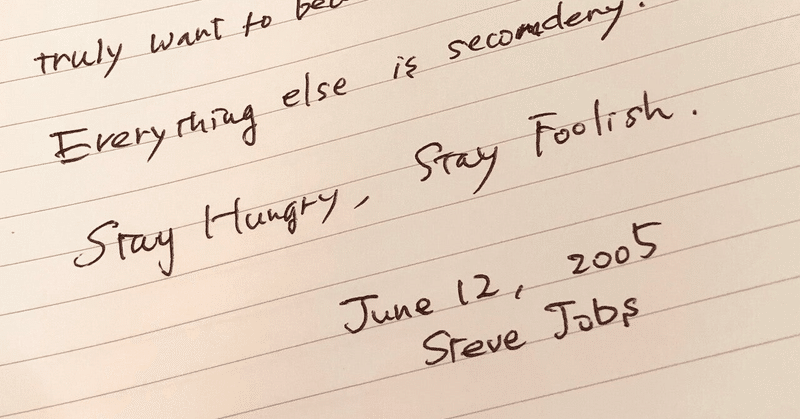 truly want to bec
Everything else is secomdery.
Stay Hungry, Stay Foolish.
June 12, 2005
Steve Jobs